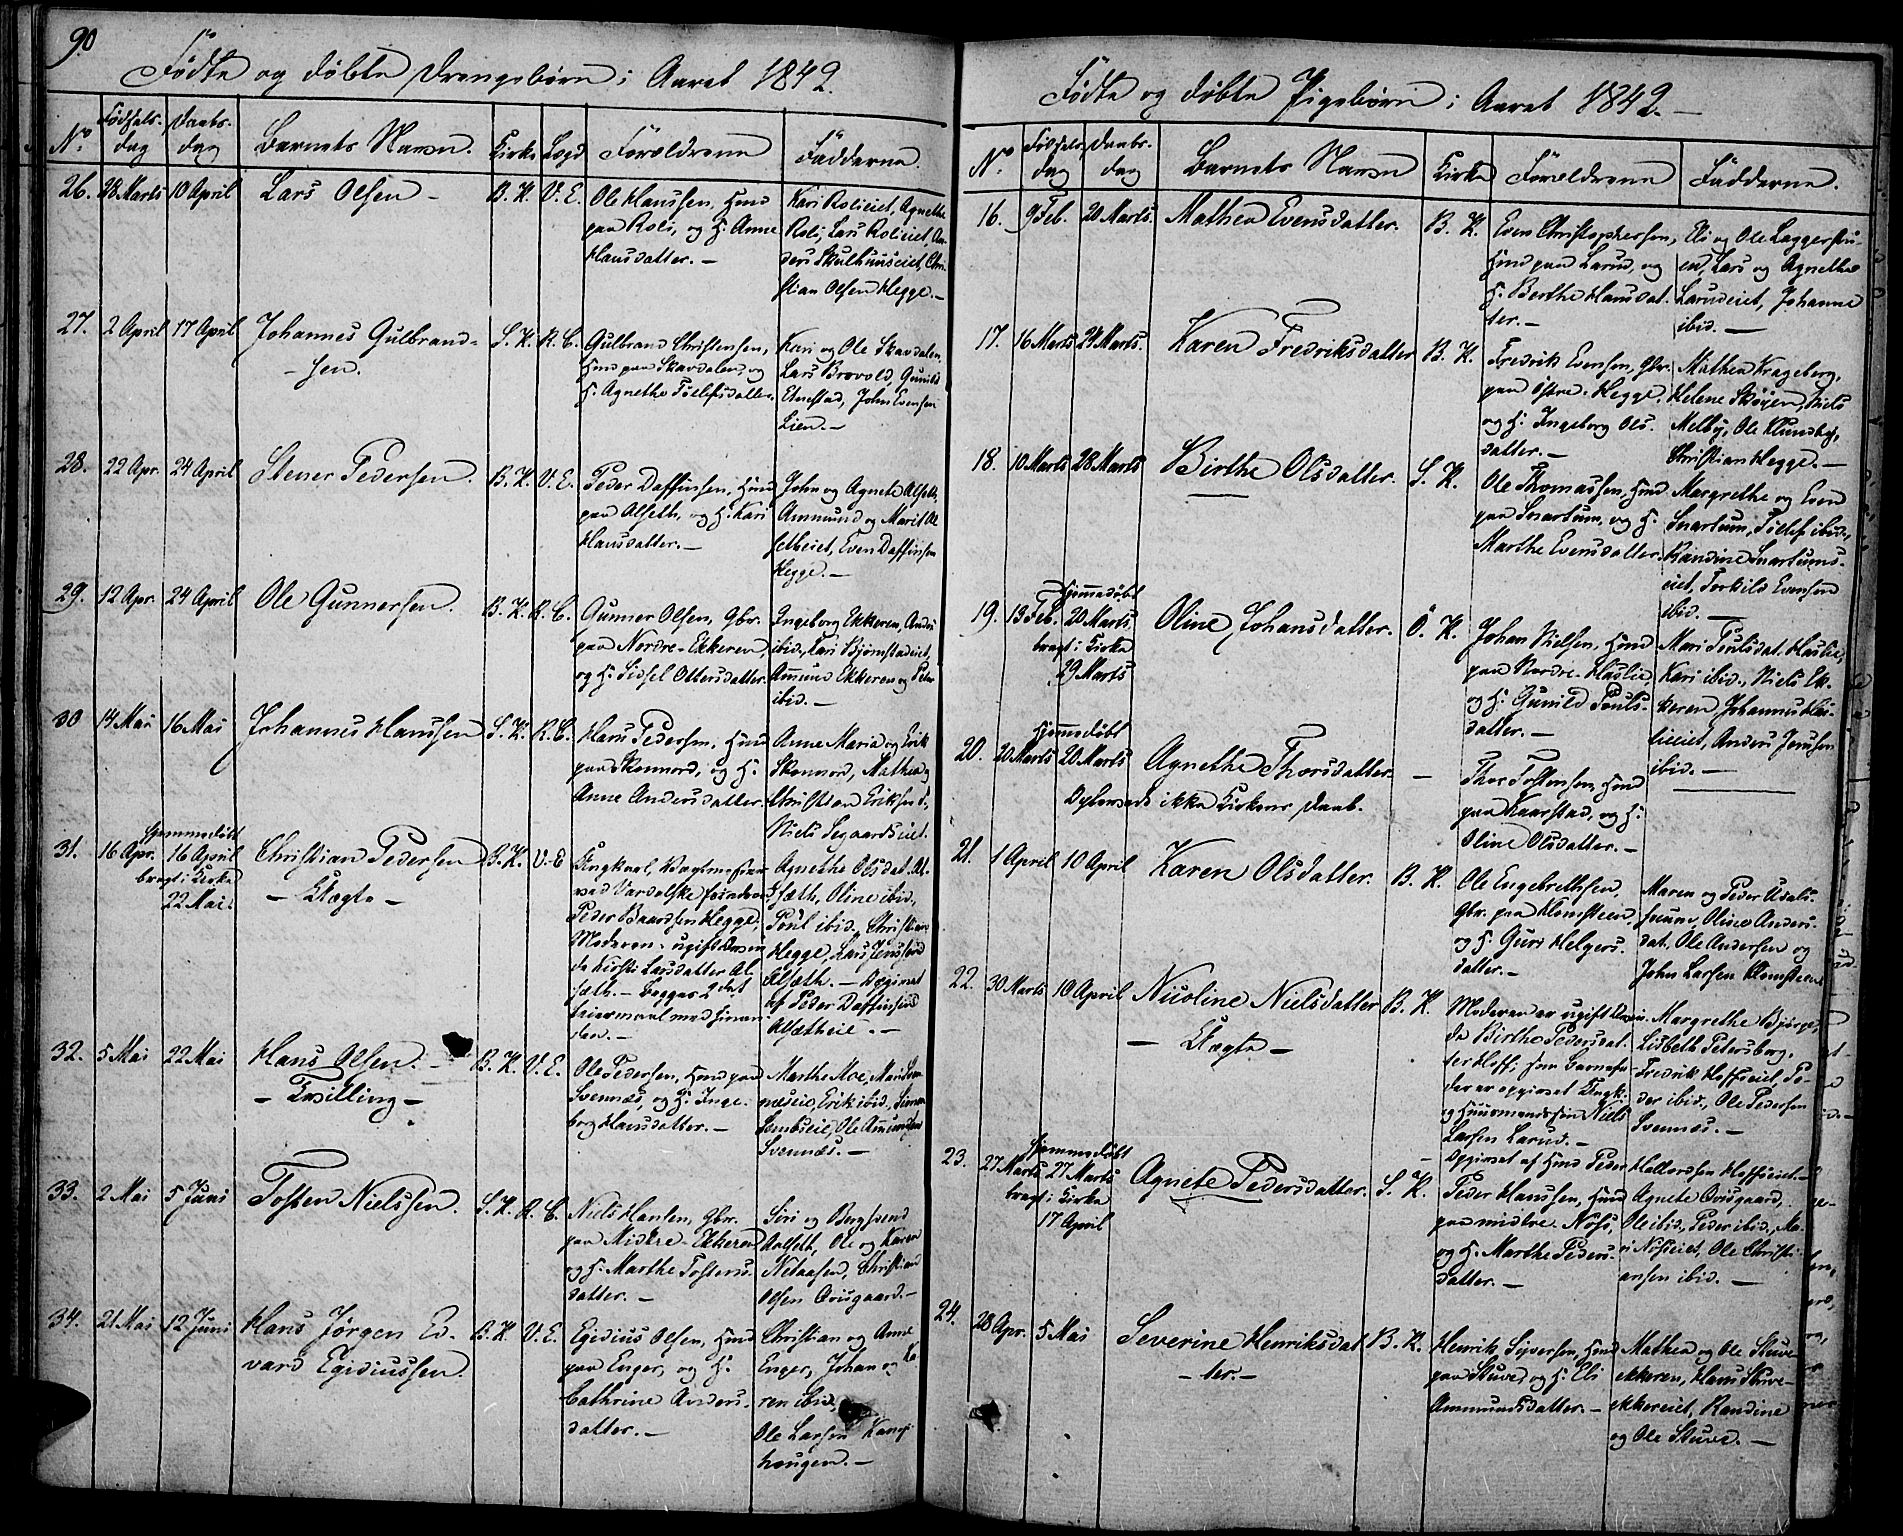 90
Födte og döbte Drengebörn i Aaret 1842.
No
Födsels-
dag
Daabs-
dag
Barnets Navn.
Kirke
Lægd
Forældrene
Fadderne.
26. 28 Marts 10 April Lars Olsen - B. K. V. E.
Ole Hanssen, Huusd
paa Roli, og H. Anne
Hansdatter. -
Kari Rolieiet, Agnethe
Roli, Lars Rolieiet, An-
ders Skulhuuseiet, Chri-
stian Olsen Hegge. -
27. 2 April 17 April Johannes Gulbrand-
- sen.
S. K. R. C.
Gulbrand Christensen,
Huusd paa Skavdalen, og
H. Agnethe Tollefsdatter.
Kari og Ole Skavdalen,
Lars Brovold, Gunild
Etnestad, John Evensen
Lien. -
28. 22 Apr. 24 April Stener Pedersen. B. K. V. E.
Peder Daffinsen, Huusd
paa Alseth, og H. Kari
Hansdatter. -
John og Agnete Alseth,
Ammund og Marit Al-
setheiet, Even Daffinsen
Hegge. -
29. 12 Apr. 24 April Ole Gunnersen. B. K. R. C.
Gunner Olsen, Gbr.
paa Nordre-Ekkeren,
og H. Sidsel Ottersdatter.
Ingeborg Ekkeren, Anders
ibid, Kari Björnstadeiet,
Amund Ekkeren og Peder
ibid. -
30 14 Mai 16 Mai Johannes Hanssen S. K. R. C.
Hans Pedersen, Huusd
paa Skonnord, og H.
Anne Andersdatter.
Anne Maria og Erik
Skonnord, Mathea og
Christian Eriksen,
Niels Segaardseiet.
31. 16 Apr. Hjemmedöbt
16 April
bragt i Kirke
22 Mai.
Christian Pedersen
- Uægte -
B. K. V. E
Ungkarl,
ved Værdalske
Peder Baardsen Hegge,
Moderen: ugift
Kirsti Larsdatter Al-
sæth. - Begges 2det
Leiermaal med hinan-
den. -
Agnethe Olsdat. Al-
sæth, Oline ibid,
Poul ibid, Christian
Hegge, Lars Jenssen
Alsæth. - Opgivet
af Peder Daffinsen
Alsætheie. -
32. 5 Mai 22 Mai Hans Olsen. -
- Tvilling -
B. K. V. E.
Ole Pedersen, Huusd paa
Svennæs, og H. Inge-
borg Hansdatter. -
Marthe Moe,
Erik ibid, Simen
Ole Amundsen
Svennæs. -
33. 2 Mai 5 Juni Tosten Nielssen. S. K. R. C.
Niels Hansen, Gbr.
paa Midtre-Ekkeren
og H. Marthe Tostens-
datter. -
Siri og Bergsvend
Aalseth, Ole og Karen
Nelaasen, Christian
Olsen Qvisgaard. -
34. 21 Mai 12 Juni Hans Jörgen Ed-
vard Egidiussen.
B. K. V. E.
Egidius Olsen, Huusd
paa Enger, og H.
Cathrine Anders-
datter. -
Christian og Anne
Enger, Johan og Ka-
ren ibid,
Ole Larsen Kamp-
haugen. -
Födte og döbte Pigebörn i Aaret 1842. -
No
Födsels-
dag
Daabs-
dag
Barnets Navn
Kirke
Forældrene
Fadderne.
16. 9 Feb. 20 Marts. Mathea Evensdatter. B. K.
Even Christophersen,
Huusd paa Larud, og
H. Berthe Hansdat-
ter. -
Eli og Ole Laggerstu-
en, Lars og Agnethe
Larudeiet, Johanne
ibid. -
17. 16 Marts 24 Marts. Karen Fredriksdatter B. K.
Fredrik Evensen, Gbr.
paa Östre-Hegge,
og H. Ingeborg Ols-
datter. -
Mathea Krageberg,
Helene Sköyen, Niels
Melby, Ole Klundby,
Christian Hegge. -
18. 10 Marts 28 Marts Birthe Olsdatter. S. K.
Ole Thomassen, Huusd
paa Snartum, og H.
Marthe Evensdatter.
Margrethe og Even
Snartum, Tollef ibid.,
Randine Snartums-
eiet, Torkild Evensen
ibid. -
19. 13 Feb. Hjemmedöbt
20 Marts
bragt i Kirke
29 Marts
Oline Johansdatter. Ö. K.
Johan Nielsen, Huusd
paa Nordre-Haslie,
og H. Gunild Pouls-
datter. -
Mari Poulsdat. Haslie,
Kari ibid., Niels Ek-
keren, Johannes Has-
lieeiet, Anders Jenssen
ibid. -
20. 20 Marts Hjemmedöbt
20 Marts
Agnethe Thorsdatter. -
Oplevede ikke Kirkens Daab.
Thor Tostensen, Huusd
paa Kaarstad, og H.
Oline Olsdatter. -
21. 1 April 10 April Karen Olsdatter. B. K.
Ole Engebrethsen,
Gbr. paa Klomsteen,
og H. Guri Helgers-
datter. -
Maren og Peder Udals-
Oline Anders-
dat. Ole Andersen og
John Larsen Klomsteen
22. 30 Marts 10 April Nicoline Nielsdatter B. K.
- Uægte -
Moderen er ugift
Birthe Pedersdat-
ter Hoff; som Barnefa-
der er opgivet Ungk.
og Huusmandssön Niels
Larsen Larud. -
Opgivet af Huusd Peder Halvordsen Hoffseiet. -
Margrethe Bjørge,
Lisbeth Petersborg,
Fredrik Hoffseiet, Pe-
der ibid., Ole Pedersen
Svennæs. -
23. 27 Marts Hjemmedöbt
27 Marts
bragt i Kirke
17 April
Agnete Pedersdatter. S. K.
Peder Hanssen, Huusd
paa midtre Nöss,
og H. Marthe Peders-
datter. -
Agnete Qvisgaard,
Ole ibid, Peder ibid, Ma-
ri Nösseiet, Ole Christi-
ansen ibid. -
24. 28 Apr. 5 Mai Severine Henriksdat-
- ter. -
B. K.
Henrik Syversen, Huusd
paa Stuve, og H. Eli
Ammundsdatter. -
Mathea og Ole Stuve-
ekkeren, Hans Stuve-
ekkereiet, Randine
og Ole Stuve. -